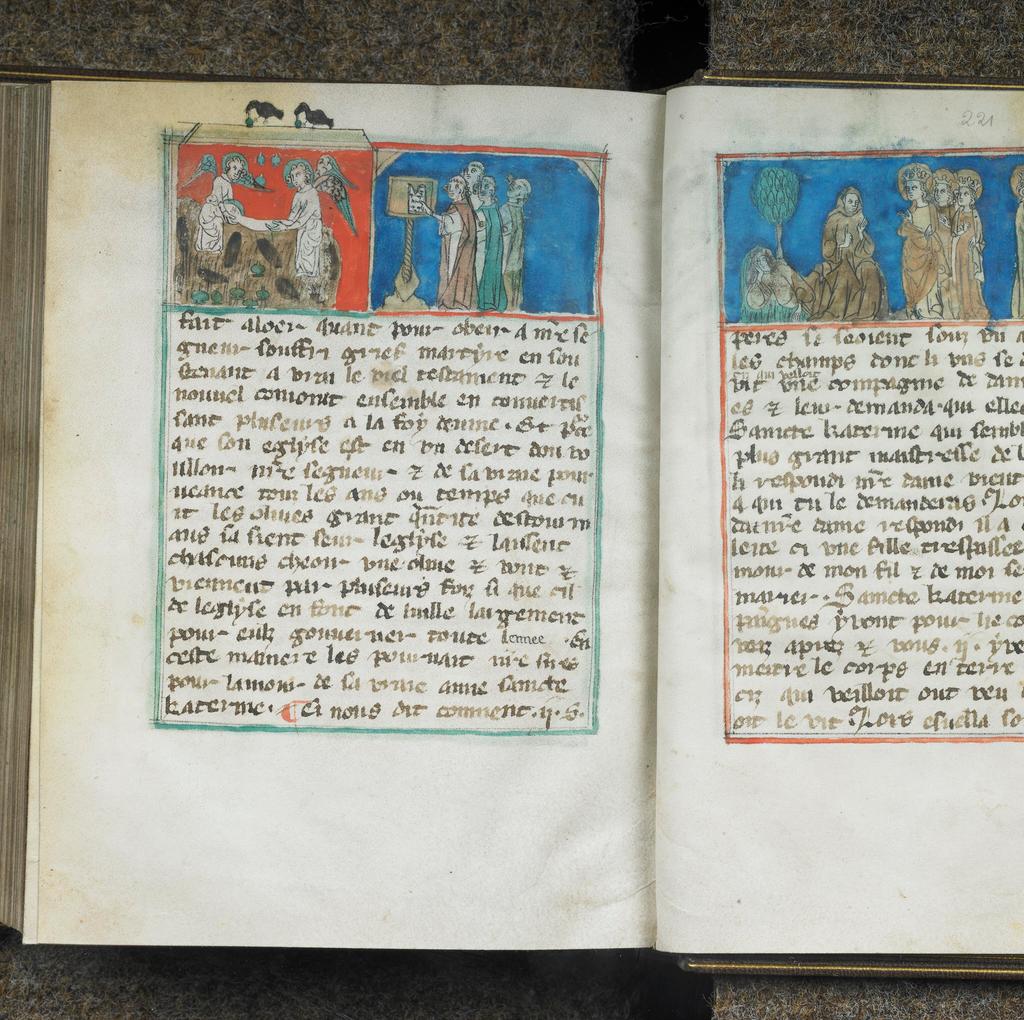 fait aloer quant pour obeir a mr̄e se
gneur souffri grief martyre en sou
stenant a vrai le viel testament ⁊ le
nouuel conioint ensemble en conuertis
sant pluseurs a la foy deuine. Et pͣce
que son eglyse est en vn desert dou vo
illoir mr̄e segneur ⁊ de sa vraie pour
ueance tour les ans ou temps que cu
it les oliues grant q̄ntite
ans sa sieent seur leglyse ⁊ laissent
chascuns cheoir vne oliue ⁊ vont ⁊
viennent par pluseurs foiz si que cil
de leglyse en font de luille largement
pour eulz gouuerner toute lennee. En
ceste maniere les pouruait nr̄e sires
pour lamour de sa vraie amie saincte
katerine. ¶ Ci nous dit comment .ij. s.
221
peres se seoient souz vn a
les champs dont li vns se d
en qui veilloit
vit vne compagnie de dam
es ⁊ leur demanda qui elle
Saincte katerine qui sembl
plus grant maistresse de l
li respondi mr̄e dame vient
a qui tu le demanderas. Lor
da mr̄e dame respondi il a
leite ci vne fille trespassee
mour de mon fil ⁊ de moi se
marier. Saincte katerine
paignes y vont pour lie co
voiz apres ⁊ vous .ij. yre
mettre le corps en terre
cilz qui veilloit out veu
oit le vit Lors esueilla so